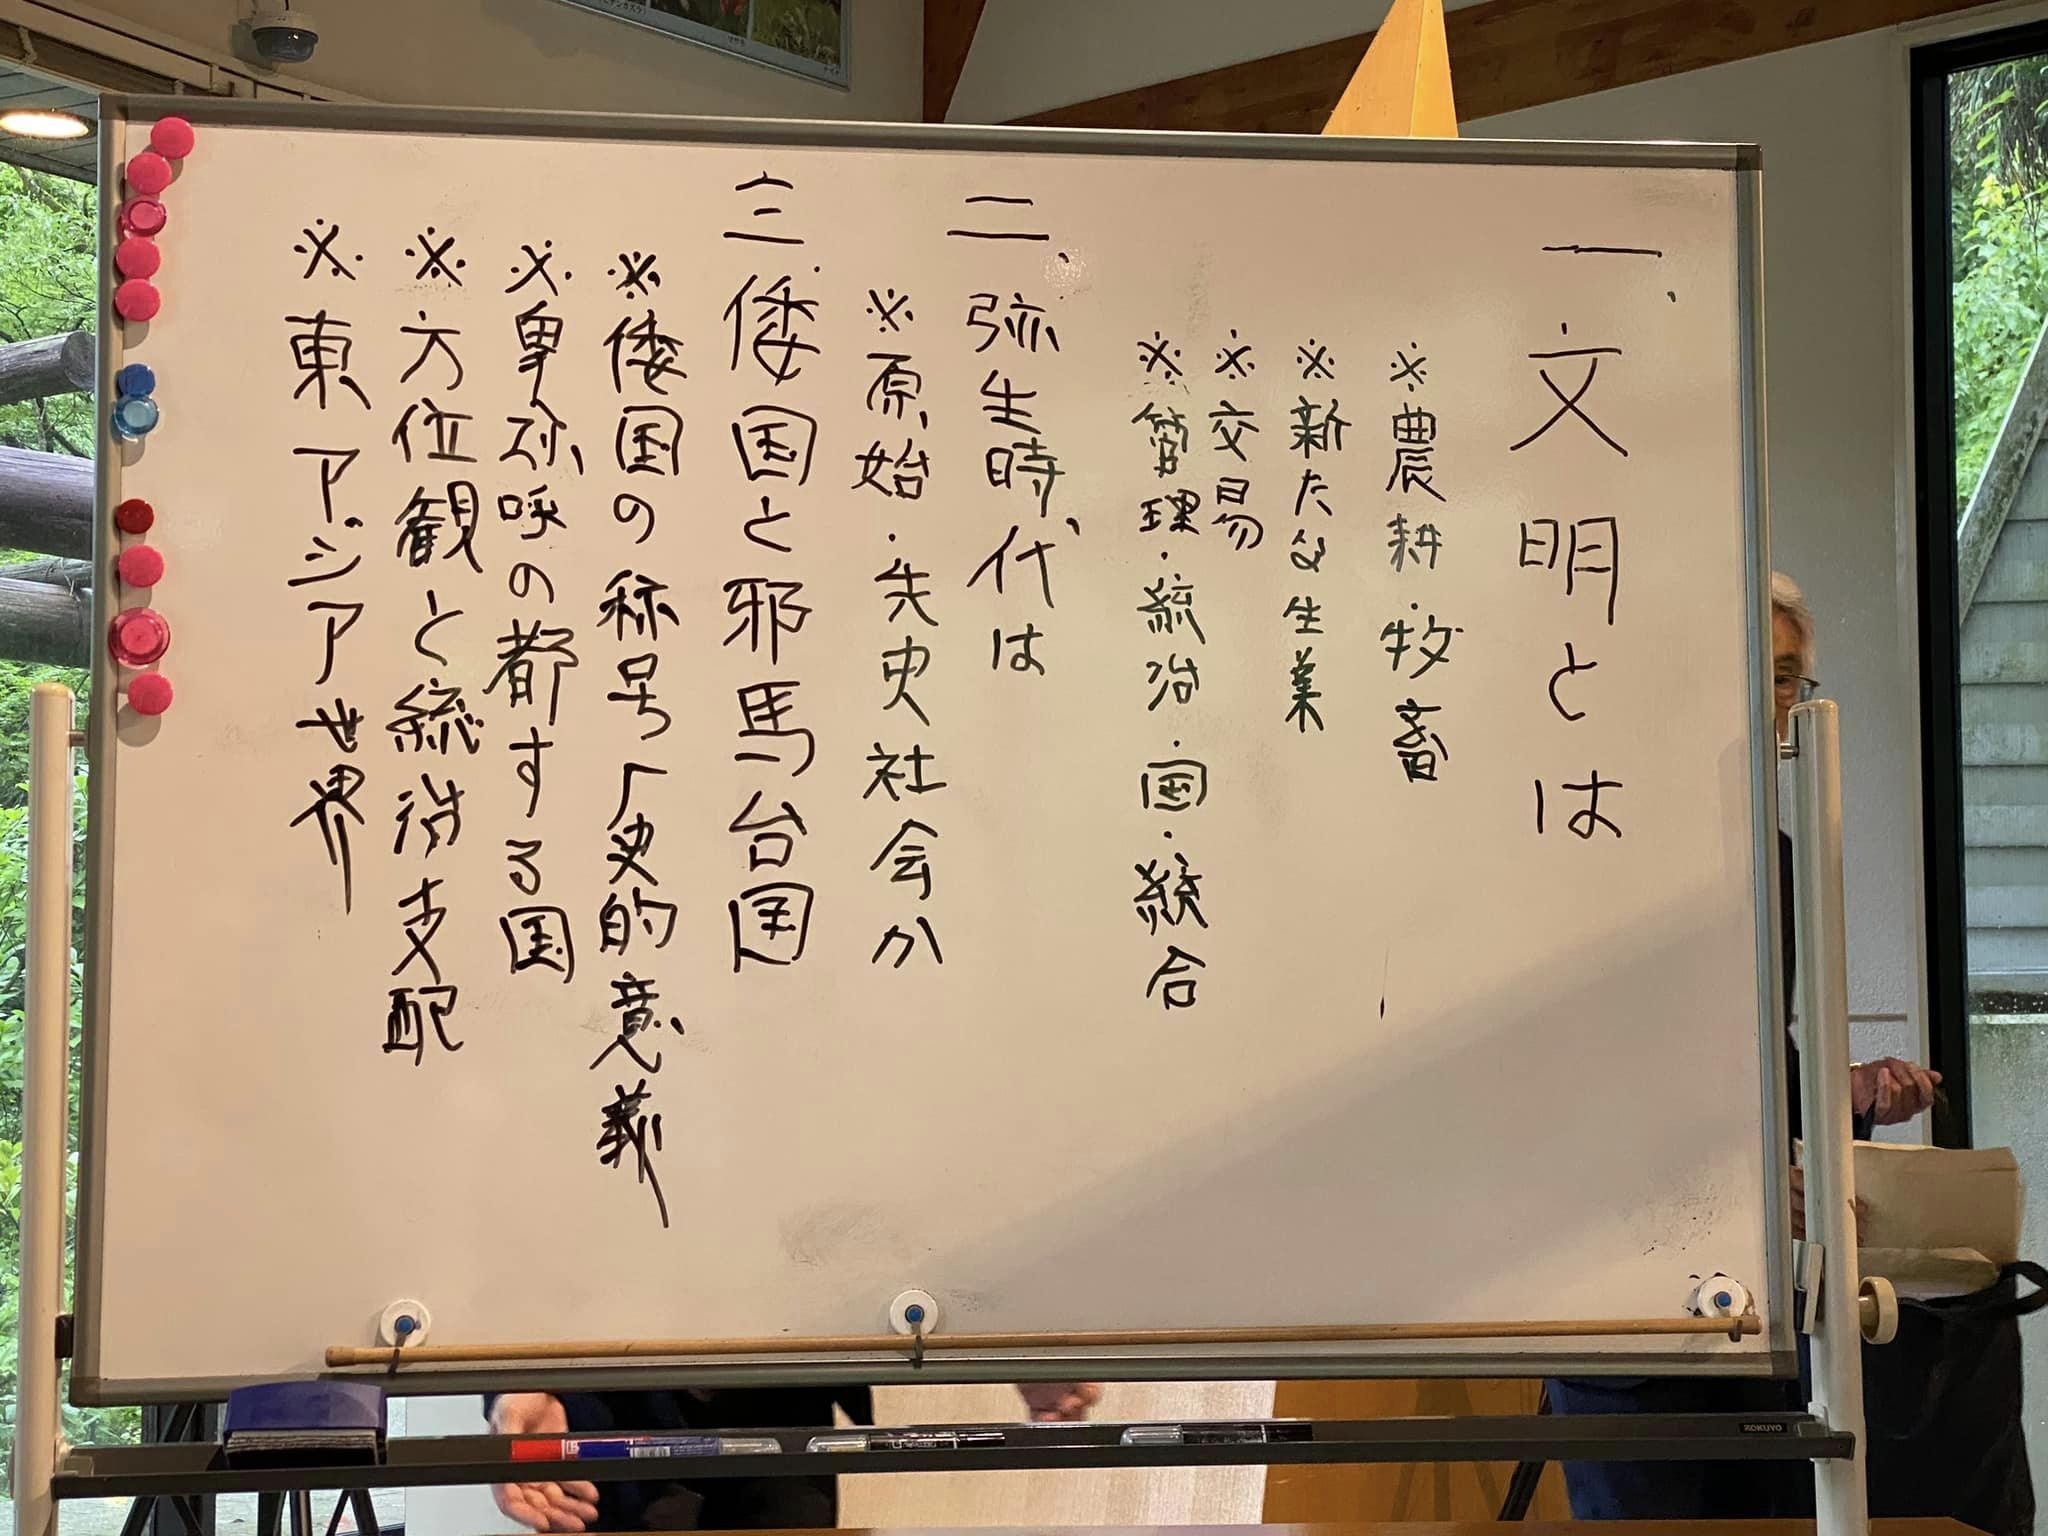 一、文明とは
※農耕・牧畜
※新たな生業
※交易
※管理・統治・国・統合
二、弥生時代は
※原始・先史社会か
三、倭国と邪馬台国
※倭国の称号「史的意義
※卑弥呼の都する国
※方位観と統治支配
※東アジア世界
KOKUYO